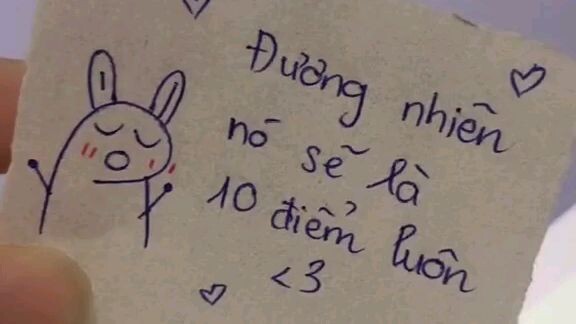 Đương nhiên
nó sẽ là
10 điểm luôn
<3